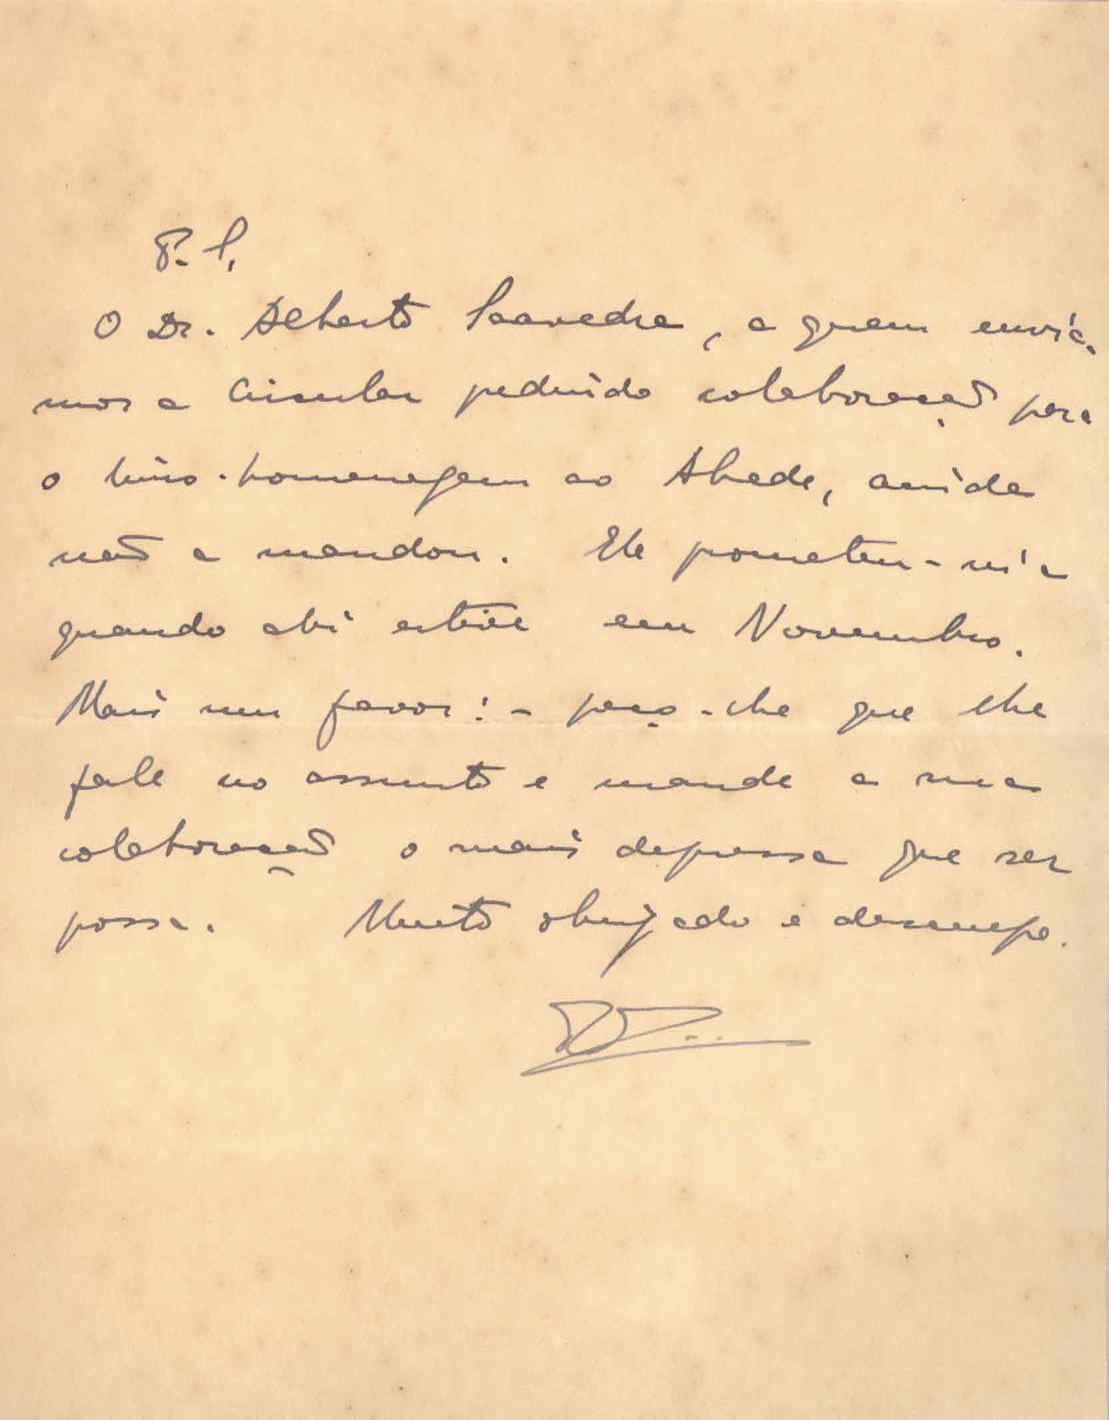 P. S.
O Dr. Alberto Saavedra, a quem enviá-
mos a Circular pedindo colaboração para
o livro-homenagem ao Abade, ainda
não a mandou. Ele prometeu-m'a
quando ahi estive em Novembro.
Mais um favor: - peço-lhe que lhe
fale no assunto e mande a sua
colaboração o mais depressa que ser
possa. Muito obrigado e desculpe.